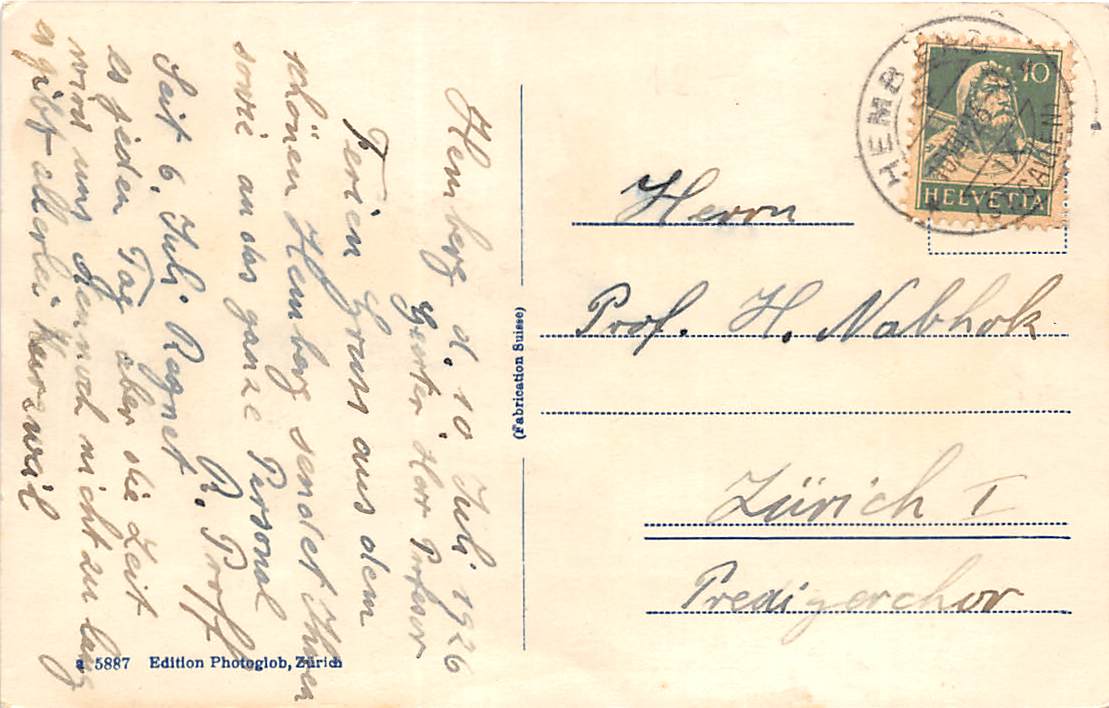 Hemberg d. 10 Juli 1926
Geerter Herr Profesor
Ferien Gruss aus dem
schönen Hemberg sendet Ihnen
sowie an das ganze Personal
R. Proff
Seit 6, Juli Ragnet
es jeden Tag aber die Zeit
wird uns dennoch nicht zu lang
es gibt allerlei Kurzweil
a 5887 Edition Photoglob, Zürich
(Fabrication Suisse)
HEMBERG
(ST. GALLEN)
10
HELVETIA
Herrn
Prof. H. Nabholz
Zürich I
Predigerchor